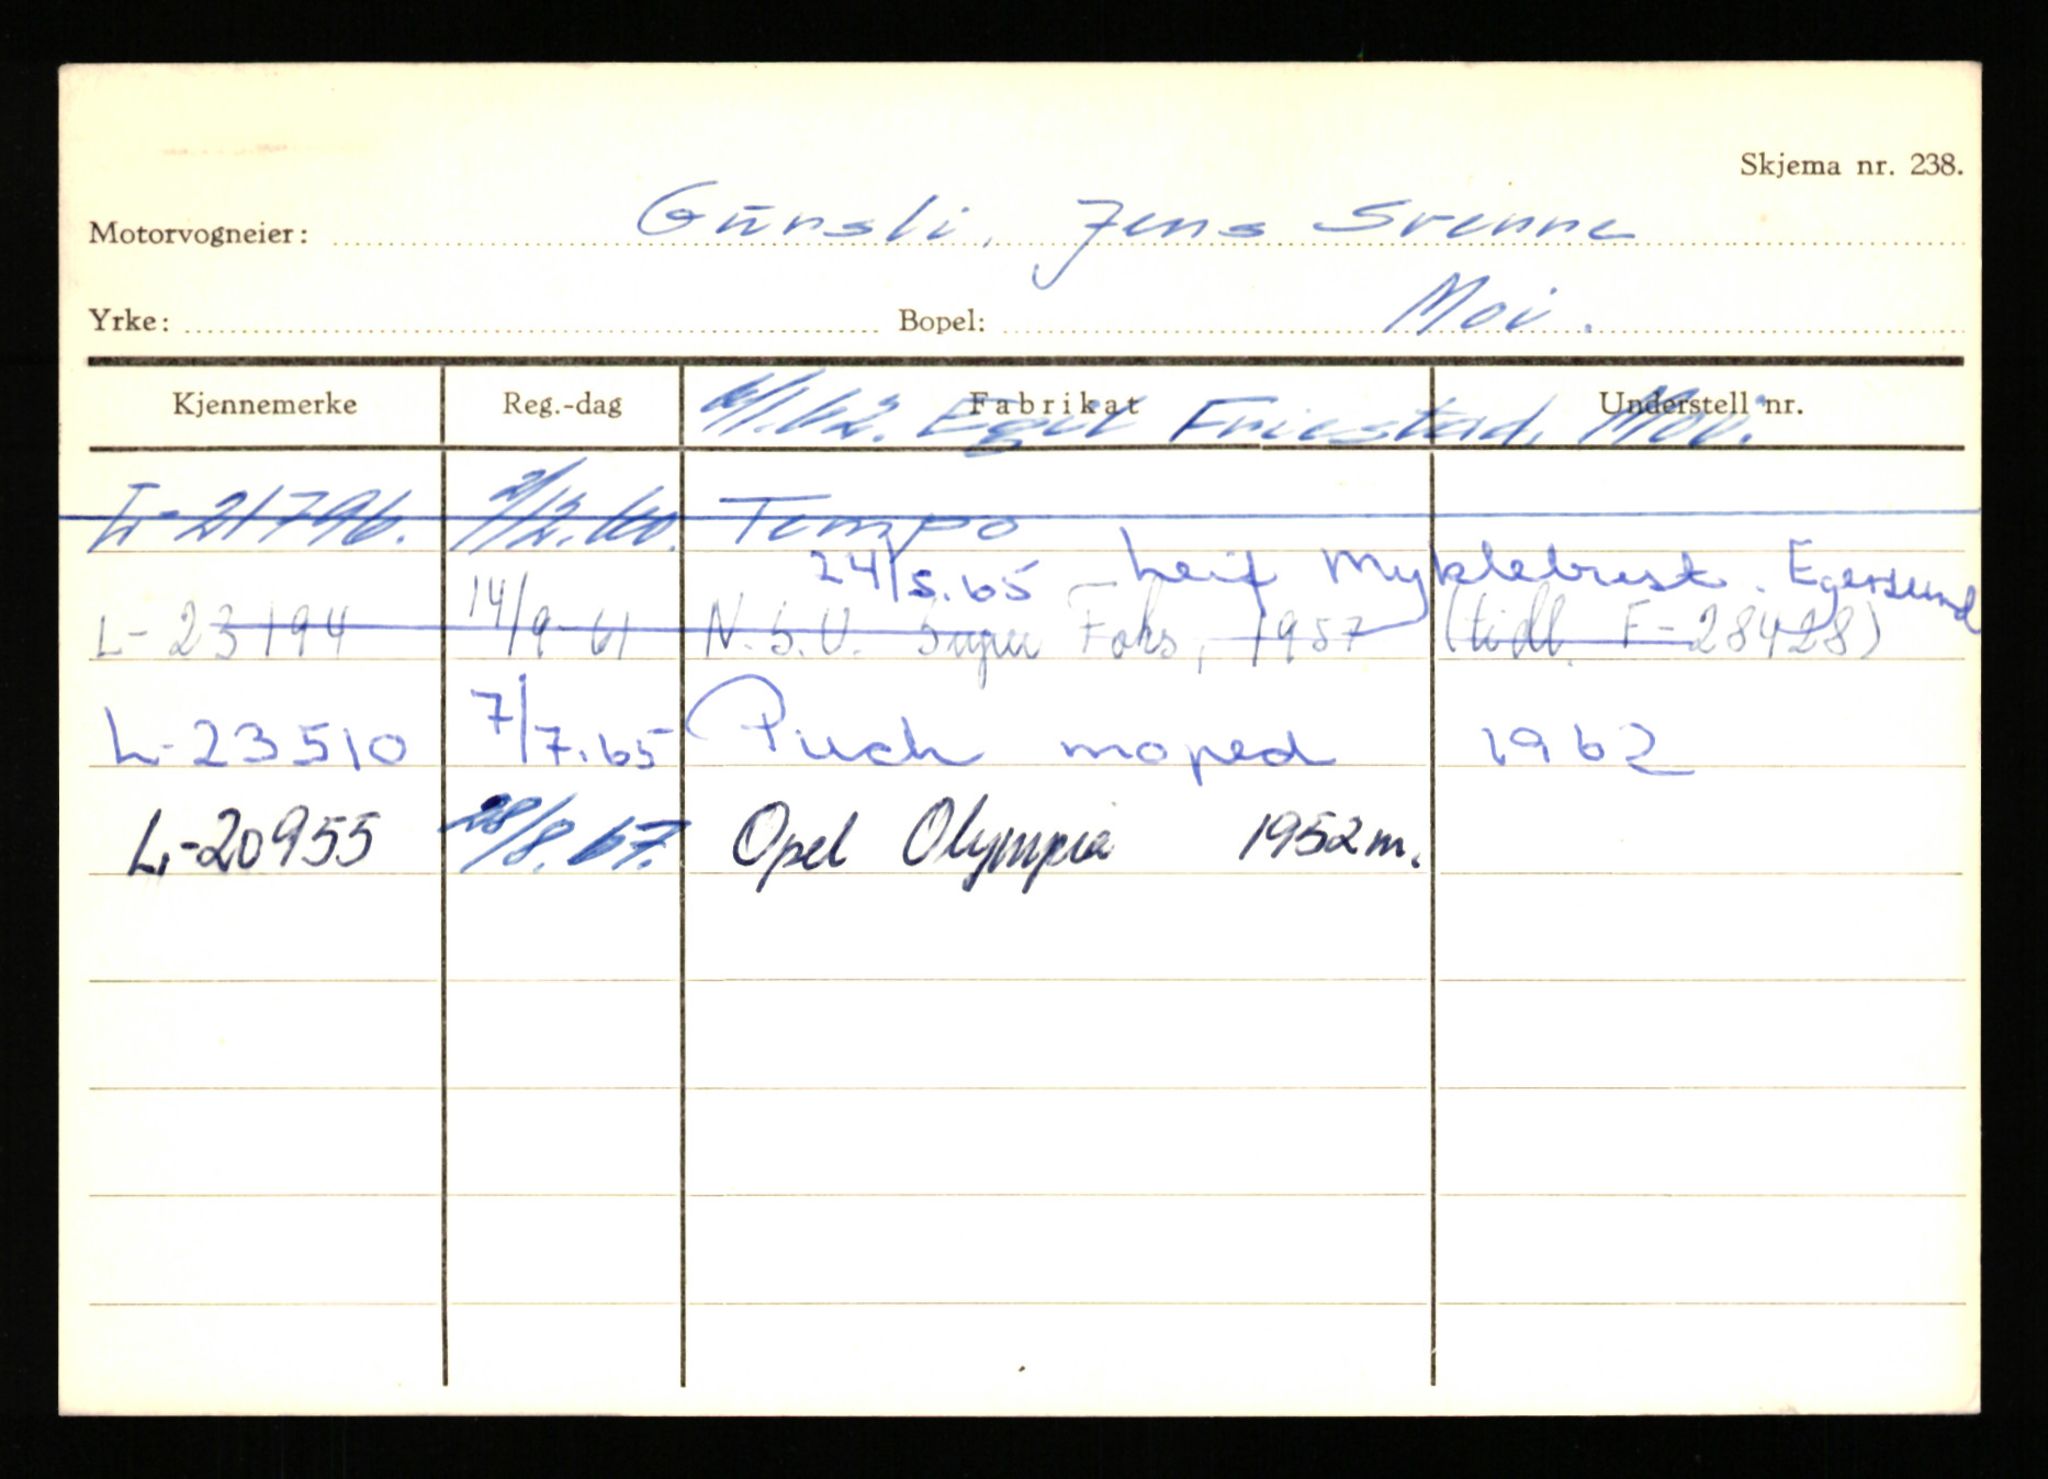 Skjema nr. 238.
Motorvogneier: Gursli, Jens Svenne
Yrke: Bopel: Moi.
Kjennemerke Reg.-dag Fabrikat Understell nr.
62. Egil Friestad, Moi.
L-21796. 2/12.60. Tempo
24/5.65 Leif Myklebust. Egersund
L-23194 14/9-61 N.S.U. Super Foks, 1957 (tidl. F-28428)
L-23510 7/7.65 Puch moped 1962
L-20955 28/8.67. Opel Olympia 1952 m.